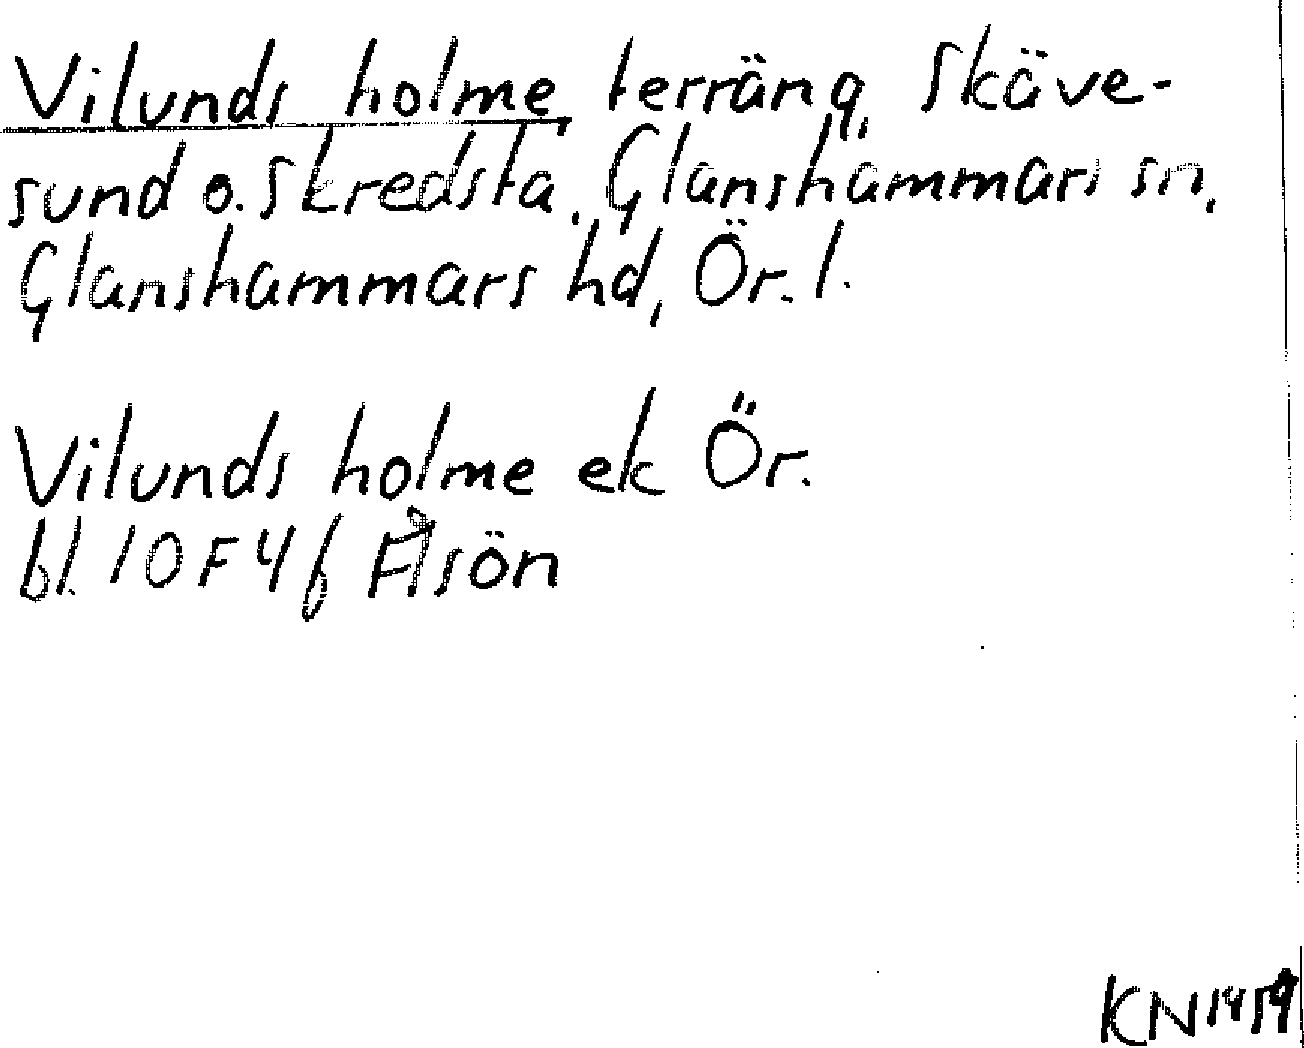 Vilunds holme, terräng, Skäve-
sund o. Skredsta. Glanshammars sn,
Glanshammars hd, Ör. l.
Vilunds holme ek Ör.
bl. 10F4f
KN